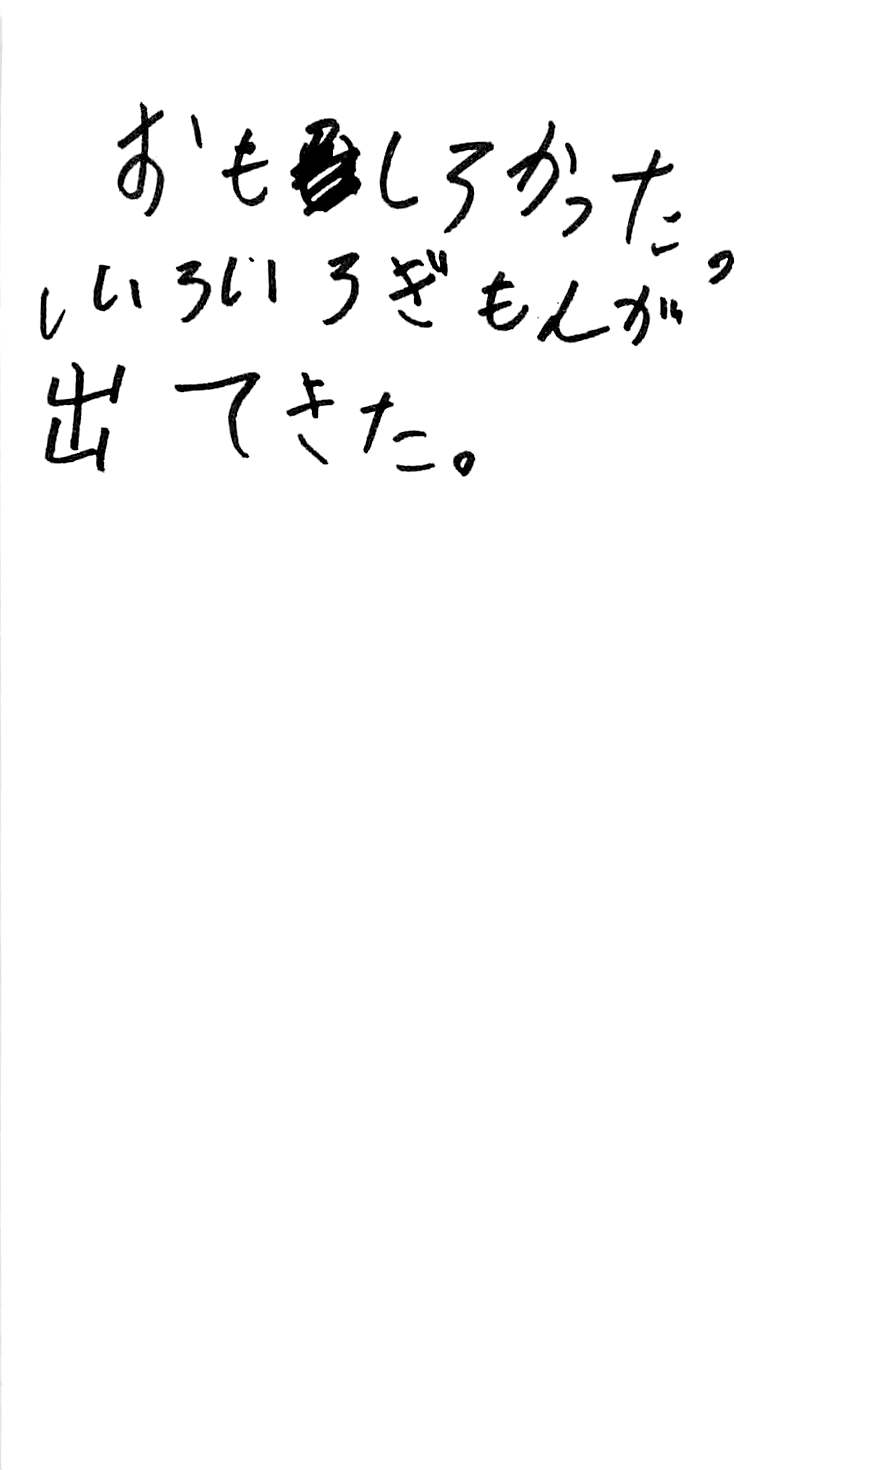 おもしろかった。
いろいろぎもんが
出てきた。